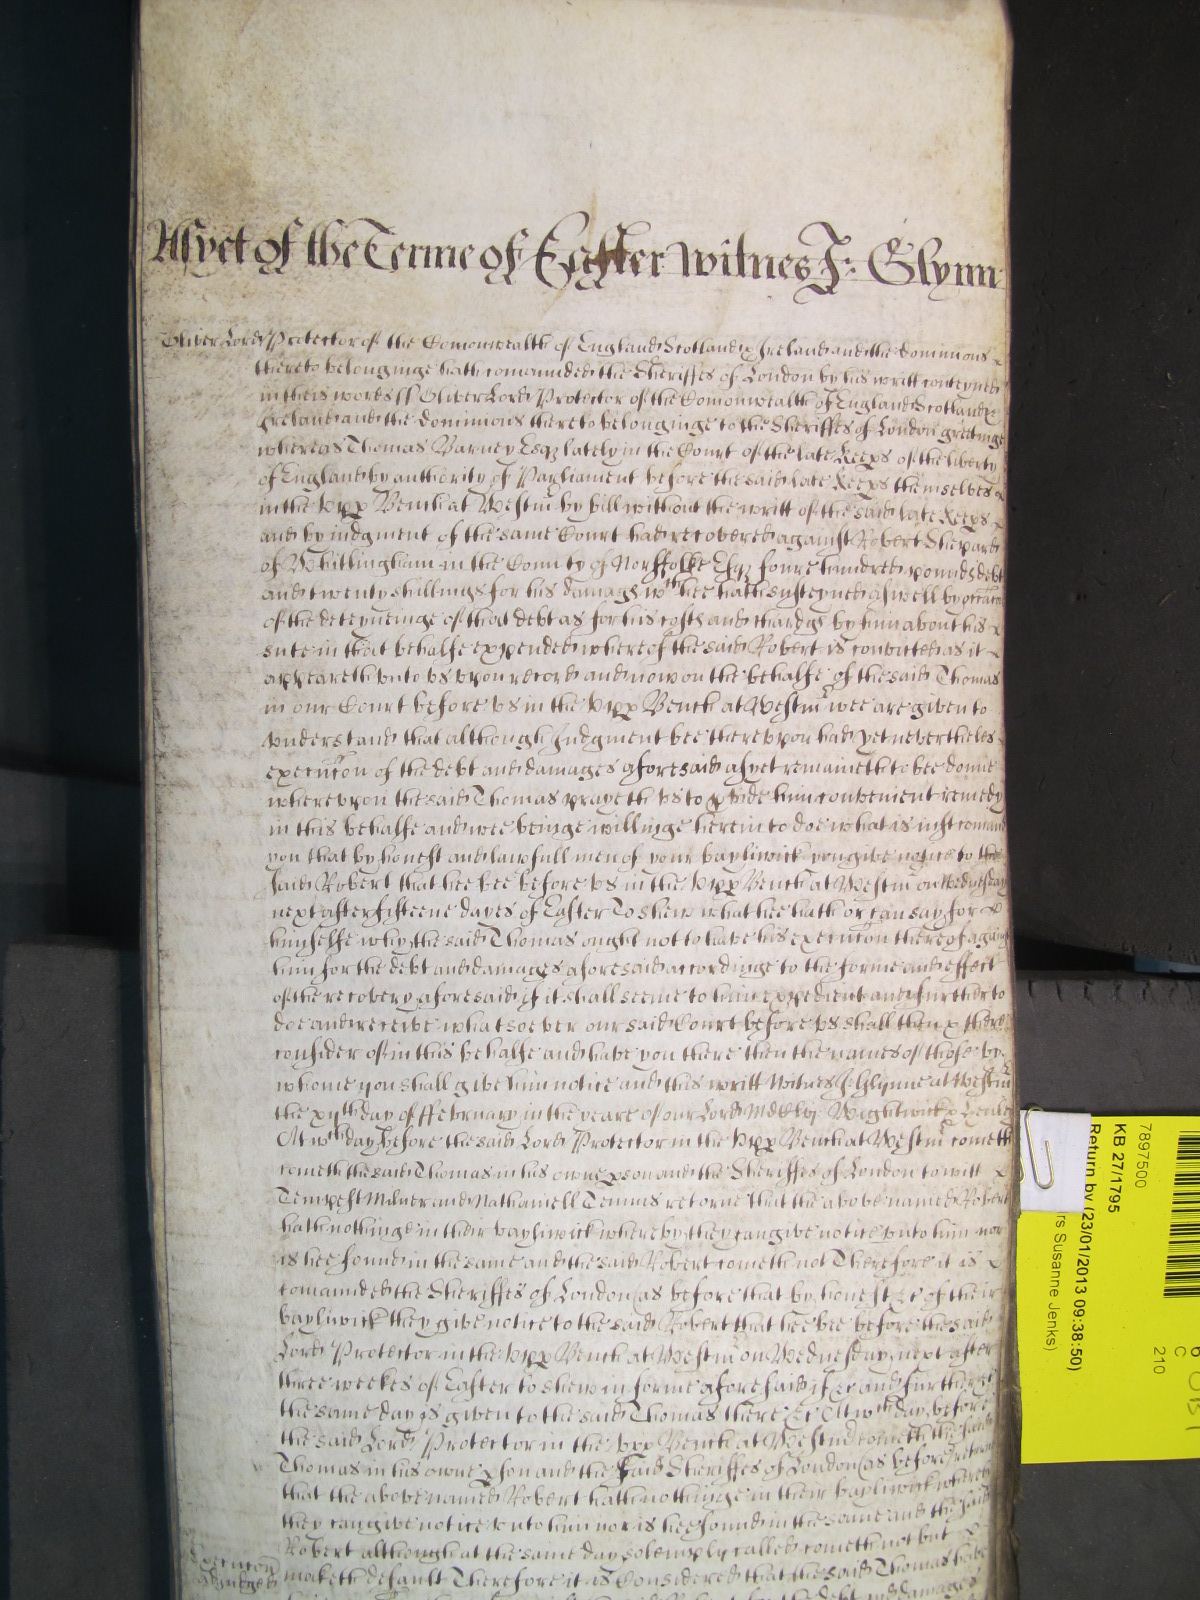 As yet of the Terme of Easter Witnes J: Glynn
Oliver Lord Protector of the Comonwealth of England Scotland & Ireland and the dominions
thereto belonginge hath comaunded the Sheriffes of London by his writt conteyned
in theis words ss Oliver Lord Protector of the Comonwealth of England Scotland &
Ireland and the dominions thereto belonginge to the Sheriffes of London greetinge
whereas Thomas Barney Esqz lately in the Court of the late Keeps of the liberty
of England by authority of Parliament before the said late Keeps themselves
in the Upp Bench at Westm by bill without the writt of the said late Keeps
and by iudgment of the same Court had recovered against Robert Shepard
of Whittingham in the County of Norffolke Esqz foure hundred pounds debt
and twenty shillings for his damags wch hee hath susteyned aswell by occacon
of the deteyneinge of that debt as for his costs and chardgs by him about his
sute in that behalfe expended whereof the said Robert is convicted as it
appeareth unto us upon record and now on the behalfe of the said Thomas
in our Court before us in the Upp Bench at Westm wee are given to
understand that although Judgment bee thereupon had yet nevertheles
execucon of the debt and damages aforesaid as yet remaineth to bee donne
whereupon the said Thomas prayeth us to pvide him convenient remedy
in this behalfe and wee beinge willinge herein to doe what is iust comand
you that by honest and lawfull men of your bayliwick you give notice to the
said Robert that hee bee before us in the Upp Bench at Westm on Wednesday
next after fifteene dayes of Easter To shew what hee hath or can say for
himselfe why the said Thomas ought not to have his execucon thereof against
him for the debt and damages aforesaid accordinge to the forme and effect
of the recovery aforesaid if it shall seeme to him expedient and further to
doe and receive whatsoever our said Court before us shall then & there
consider of in this behalfe and have you there then the names of those by
whome you shall give him notice and this writt Witnes J: Glynne at Westm
the xijth day of ffebruary in the yeare of our Lord MDClvj Wightwick &
At wch day before the said Lord Protector in the Upp Bench at Westm cometh
cometh the said Thomas in his owne pson and the Sheriffes of London to witt
Tempest Milner and Nathaniell Temms retorne that the above named Robert
hath nothinge in their bayliwick whereby they can give notice unto him nor
is hee found in the same and the said Robert cometh not Therefore it is
comaunded the Sheriffes of London as before that by honest &c of their
bayliwick they give notice to the said Robert that hee bee before the said
Lord Protector in the Upp Bench at Westm on Wednesday next after
three weekes of Easter to shew in forme aforesaid if &c and further &c
the same day is given to the said Thomas there &c At wch day before
the said Lord Protector in the Upp Bench at Westm cometh the said
Thomas in his owne pson and the said Sheriffes of London (as before) retorne
that the above named Robert hath nothinge in their bayliwick whereby
they can give notice unto him nor is hee found in the same and the said
Robert although at the same day solemply called cometh not but
maketh default Therefore it is Considered that the said Thomas have
Execucon
adiudged
the debt and damages
7897500
KB 27/1795
Return by (23/01/2013 09:38:50)
rs Susanne Jenks)
C
210